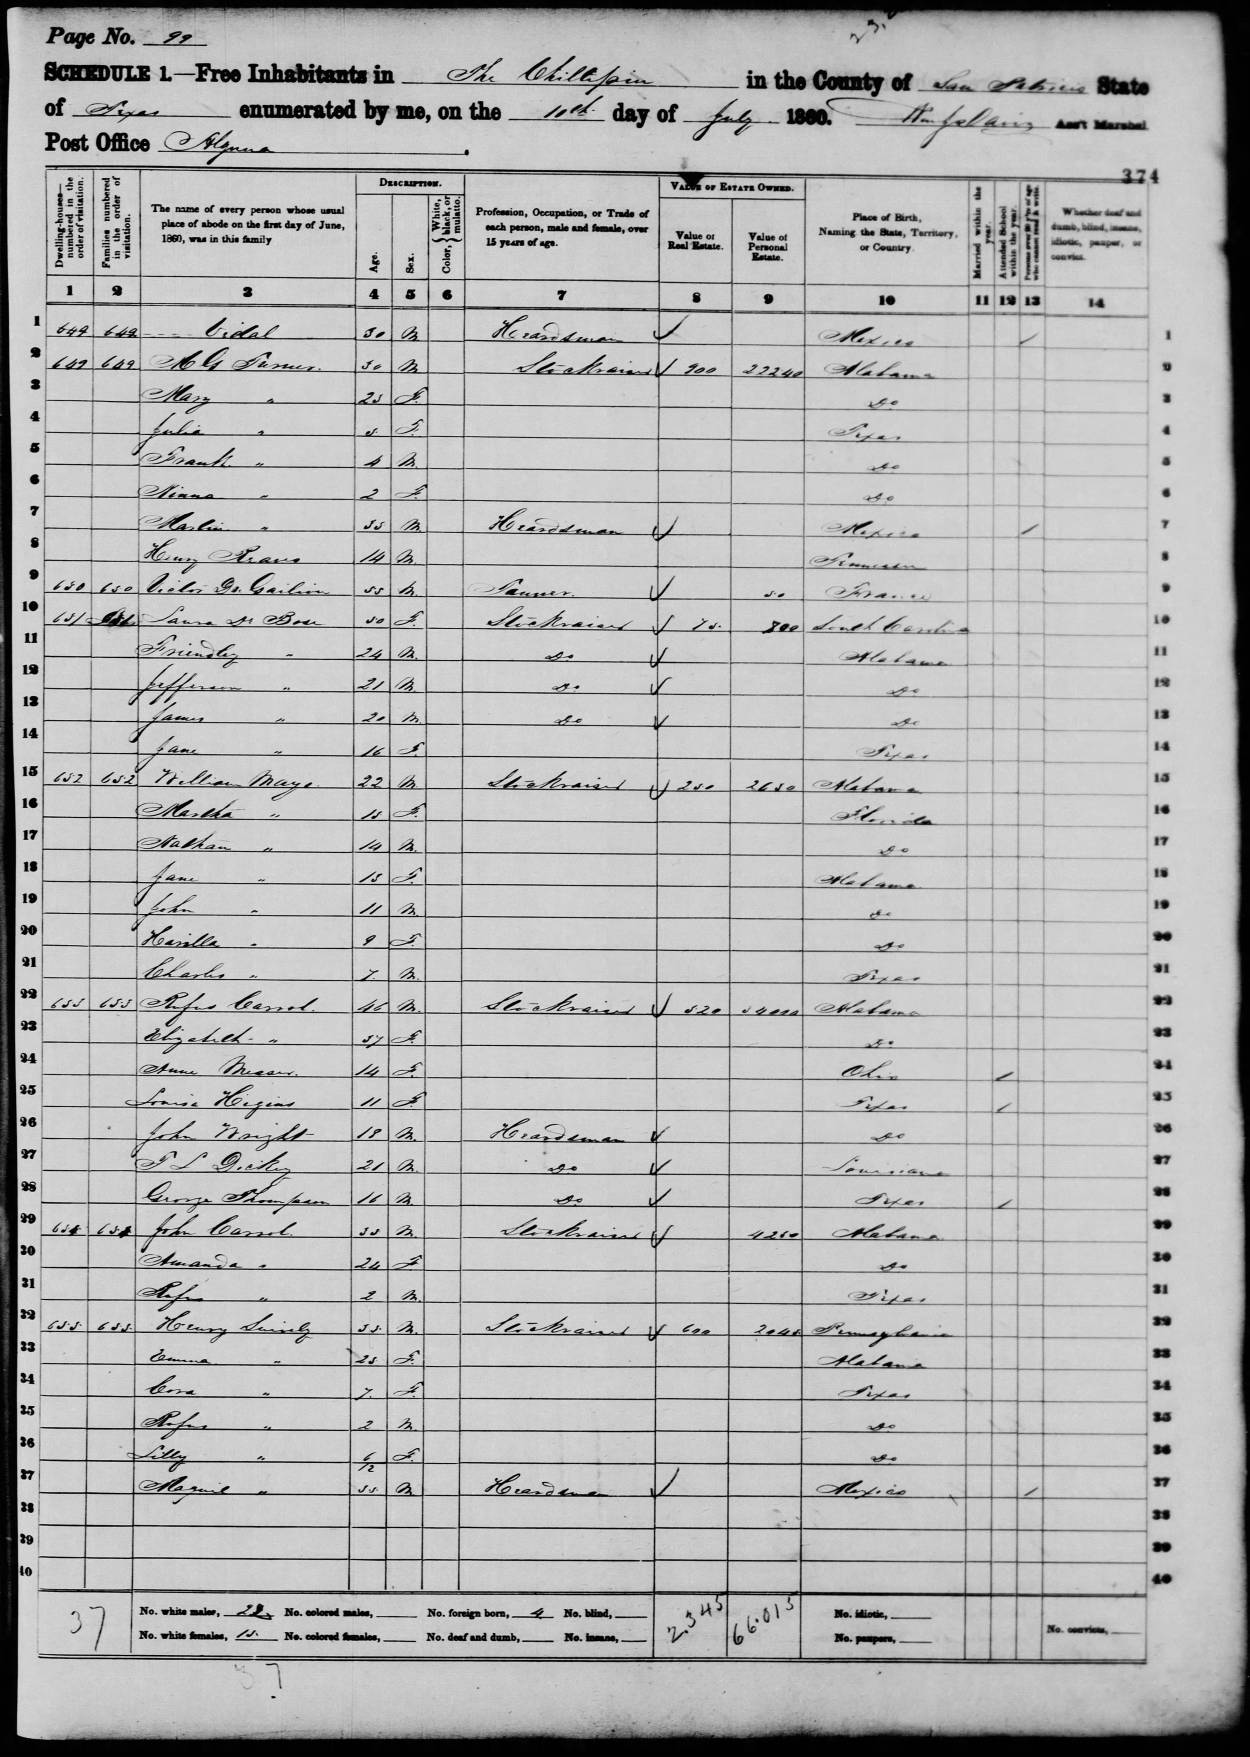 Page No. 99
SCHEDULE 1.—Free Inhabitants in The Chiltipin in the County of San Patricio State
of Texas enumerated by me, on the 10th day of July 1860. Ass't Marshal
Post Office
374
Dwelling-houses—numbered in the order of visitation.
Families numbered in the order of visitation.
The name of every person whose usual place of abode on the first day of June, 1860, was in this family
DESCRIPTION.
Age.
Sex.
Color, { White, black, or mulatto.
Profession, Occupation, or Trade of each person, male and female, over 15 years of age.
VALUE OF ESTATE OWNED.
Value of Real Estate.
Value of Personal Estate.
Place of Birth, Naming the State, Territory, or Country.
Married within the year.
Attended School within the year.
Persons over 20 y'rs of age who cannot read & write.
Whether deaf and dumb, blind, insane, idiotic, pauper, or convict.
1 2 3 4 5 6 7 8 9 10 11 12 13 14
1 649 649 Vidal 30 M Heardsman ✓ Mexico / 1
2 649 649 M G Turner 30 M Stockraiser ✓ 900 22240 Alabama 2
3 Mary " 25 F. Do 3
4 Julia " 5 F. Texas 4
5 Frank " 4 M. Do 5
6 " 2 F. Do 6
7 Martin " 35 M Heardsman ✓ Mexico / 7
8 Henry 14 M. Tennessee 8
9 650 650 Victor 55 M. Tanner ✓ 50 France 9
10 651 Laura De Bose 50 F. Stockraiser ✓ 75 800 South Carolina 10
11 Friendley " 24 M. Do ✓ Alabama 11
12 Jefferson " 21 M. Do ✓ Do 12
13 James " 20 M. Do ✓ Do 13
14 Jane " 16 F. Texas 14
15 652 652 William Mays 22 M Stockraiser ✓ 250 2650 Alabama 15
16 Martha " 15 F. Florida 16
17 Nathan " 14 M. Do 17
18 Jane " 13 F. Alabama 18
19 John " 11 M. Do 19
20 " 9 F. Do 20
21 Charles " 7 M. Texas 21
22 653 653 Rufus Carrol. 46 M. Stockraiser ✓ 520 34000 Alabama 22
23 Elizabeth " 37 F. Do 23
24 Anne 14 F. Ohio / 24
25 Louisa Higins 11 F. Texas / 25
26 John Wright 19 M. Heardsman ✓ Do 26
27 T L Dickey 21 M. Do ✓ Louisiana 27
28 George Thompson 16 M. Do ✓ Texas / 28
29 654 654 John Carrol. 33 M. Stockraiser ✓ 4250 Alabama 29
30 Amanda " 24 F Do 30
31 Rufus " 2 M. Texas 31
32 655 655 Henry 35 M. Stockraiser ✓ 600 2045 Pennsylvania 32
33 Emma " 25 F. Alabama 33
34 Cora " 7 F. Texas 34
35 Rufus " 2 M. Do 35
36 Lilly " 6/12 F. Do 36
37 " 35 M Heardsman ✓ Mexico / 37
38 38
39 39
40 40
37 No. white males, 22 No. colored males, No. foreign born, 4 No. blind, 2.345 66.015 No. idiotic,
No. white females, 15. No. colored females, No. deaf and dumb, No. insane, No. paupers, No. convicts,
37